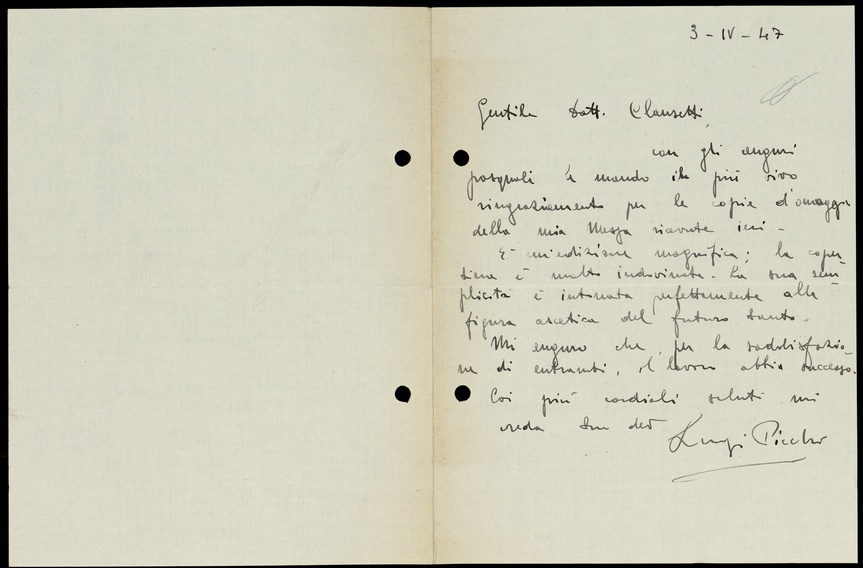 3 - IV - 47
Gentile Dott. Clausetti,
con gli auguri
pasquali le mando il più vivo
ringraziamento per le copie d'omaggio
della mia Messa ricevute ieri -
È un'edizione magnifica; la coper-
tina è molto indovinata. La sua sem-
plicità è intonata perfettamente alla
figura ascetica del futuro Santo.
Mi auguro che, per la soddisfazio-
ne di entrambi, il lavoro abbia successo.
Coi più cordiali saluti mi
creda Suo dev
Luigi Picchi